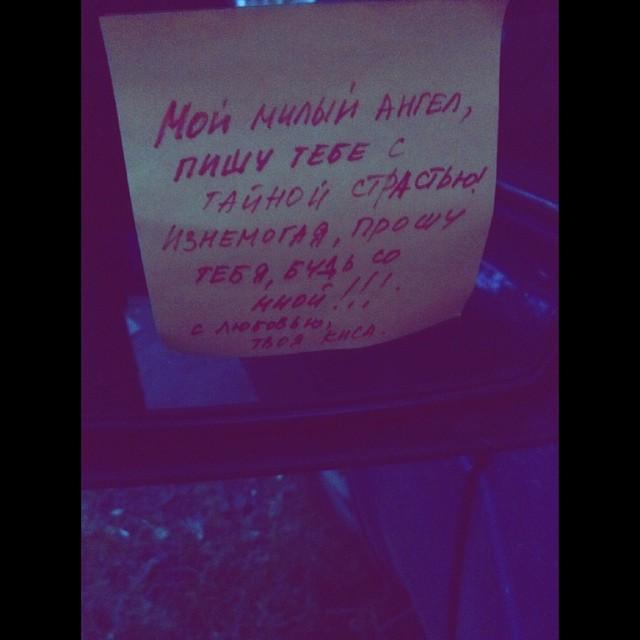 Мой милый ангел,
пишу тебе с
тайной страстью!
Изнемогая, прошу
тебя, будь со
мной!!!.
с любовью,
твоя киса.